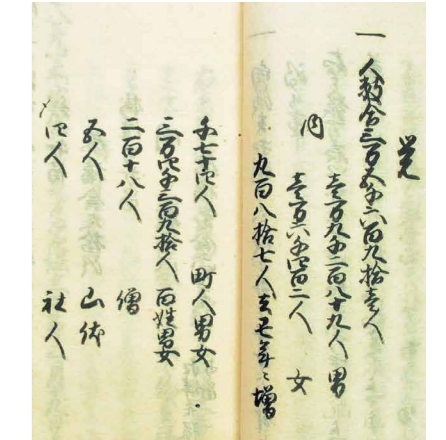 覚
一 人数合三万五千六百九拾壱人
内
壱万九千二百八十九人 男
壱万六千四百二人 女
九百八拾七人去丑年ゟ増
千七十四人 町人男女
三万四千三百九拾人 百姓男女
二百十八人 僧
五人 山伏
四人 社人